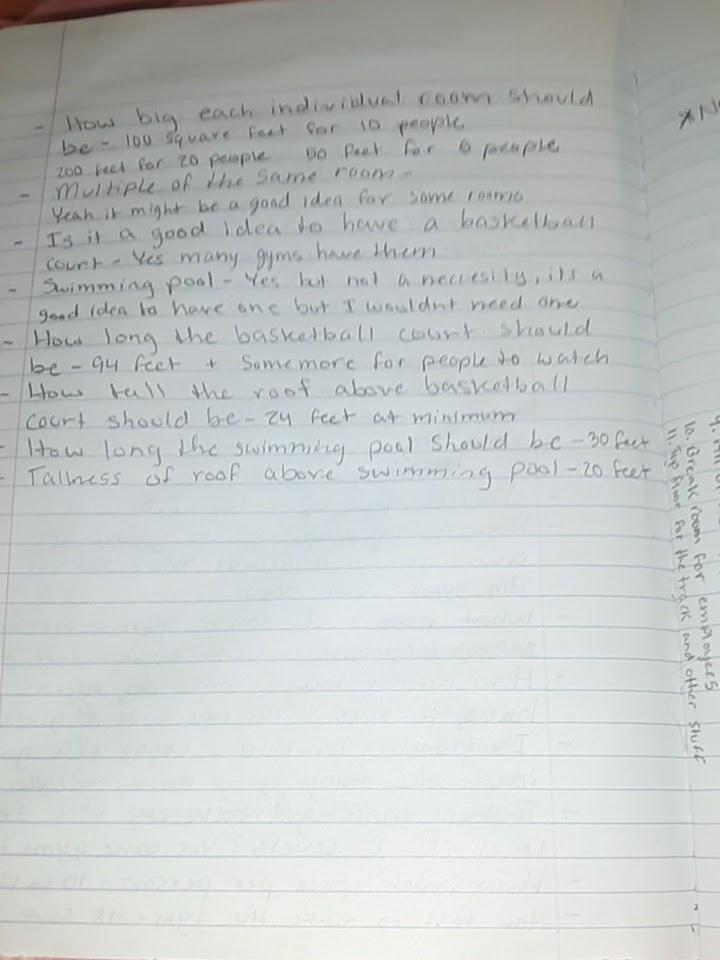 - How big each individual room should
be - 100 square feet for 10 people
200 feet for 20 people 50 feet for 5 people
- Multiple of the same room -
Yeah it might be a good idea for some rooms
- Is it a good idea to have a basketball
court - Yes many gyms have them
- Swimming pool - Yes but not a neccesity, its a
good idea to have one but I wouldnt need one
- How long the basketball court should
be - 94 feet + some more for people to watch
- How tall the roof above basketball
court should be - 24 feet at minimum
- How long the swimming pool should be - 30 feet
- Tallness of roof above swimming pool - 20 feet
10. Break room for employees
11. Top floor for the track and other stuff